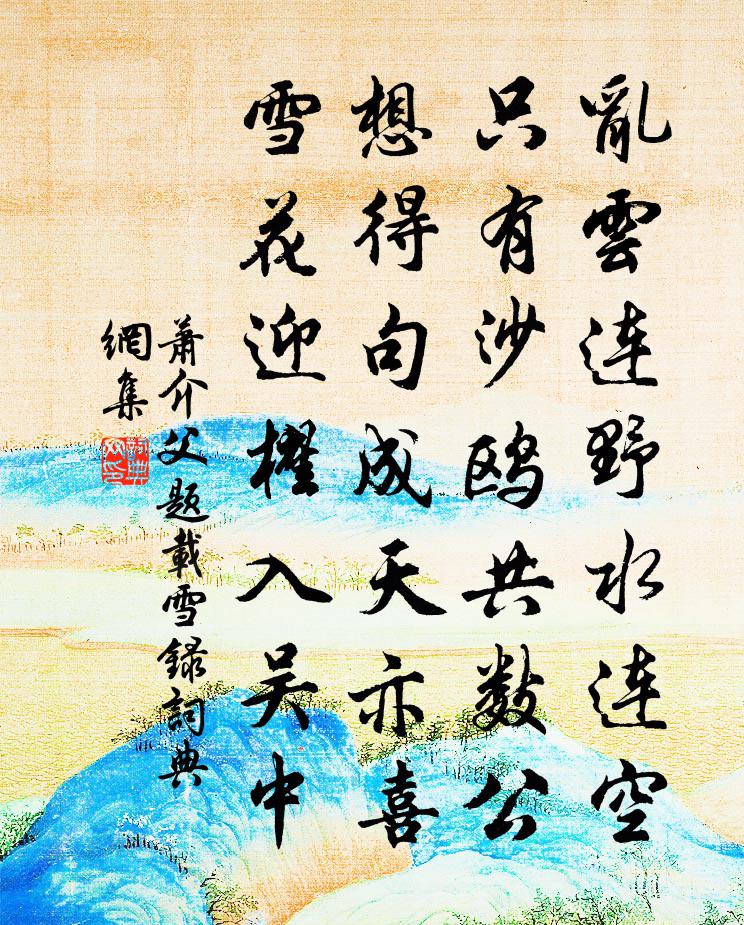 亂雲連野水連空
只有沙鷗共數公
想得句成天亦喜
雪花迎櫂入吳中
蕭介父題載雪錄詞典
網集